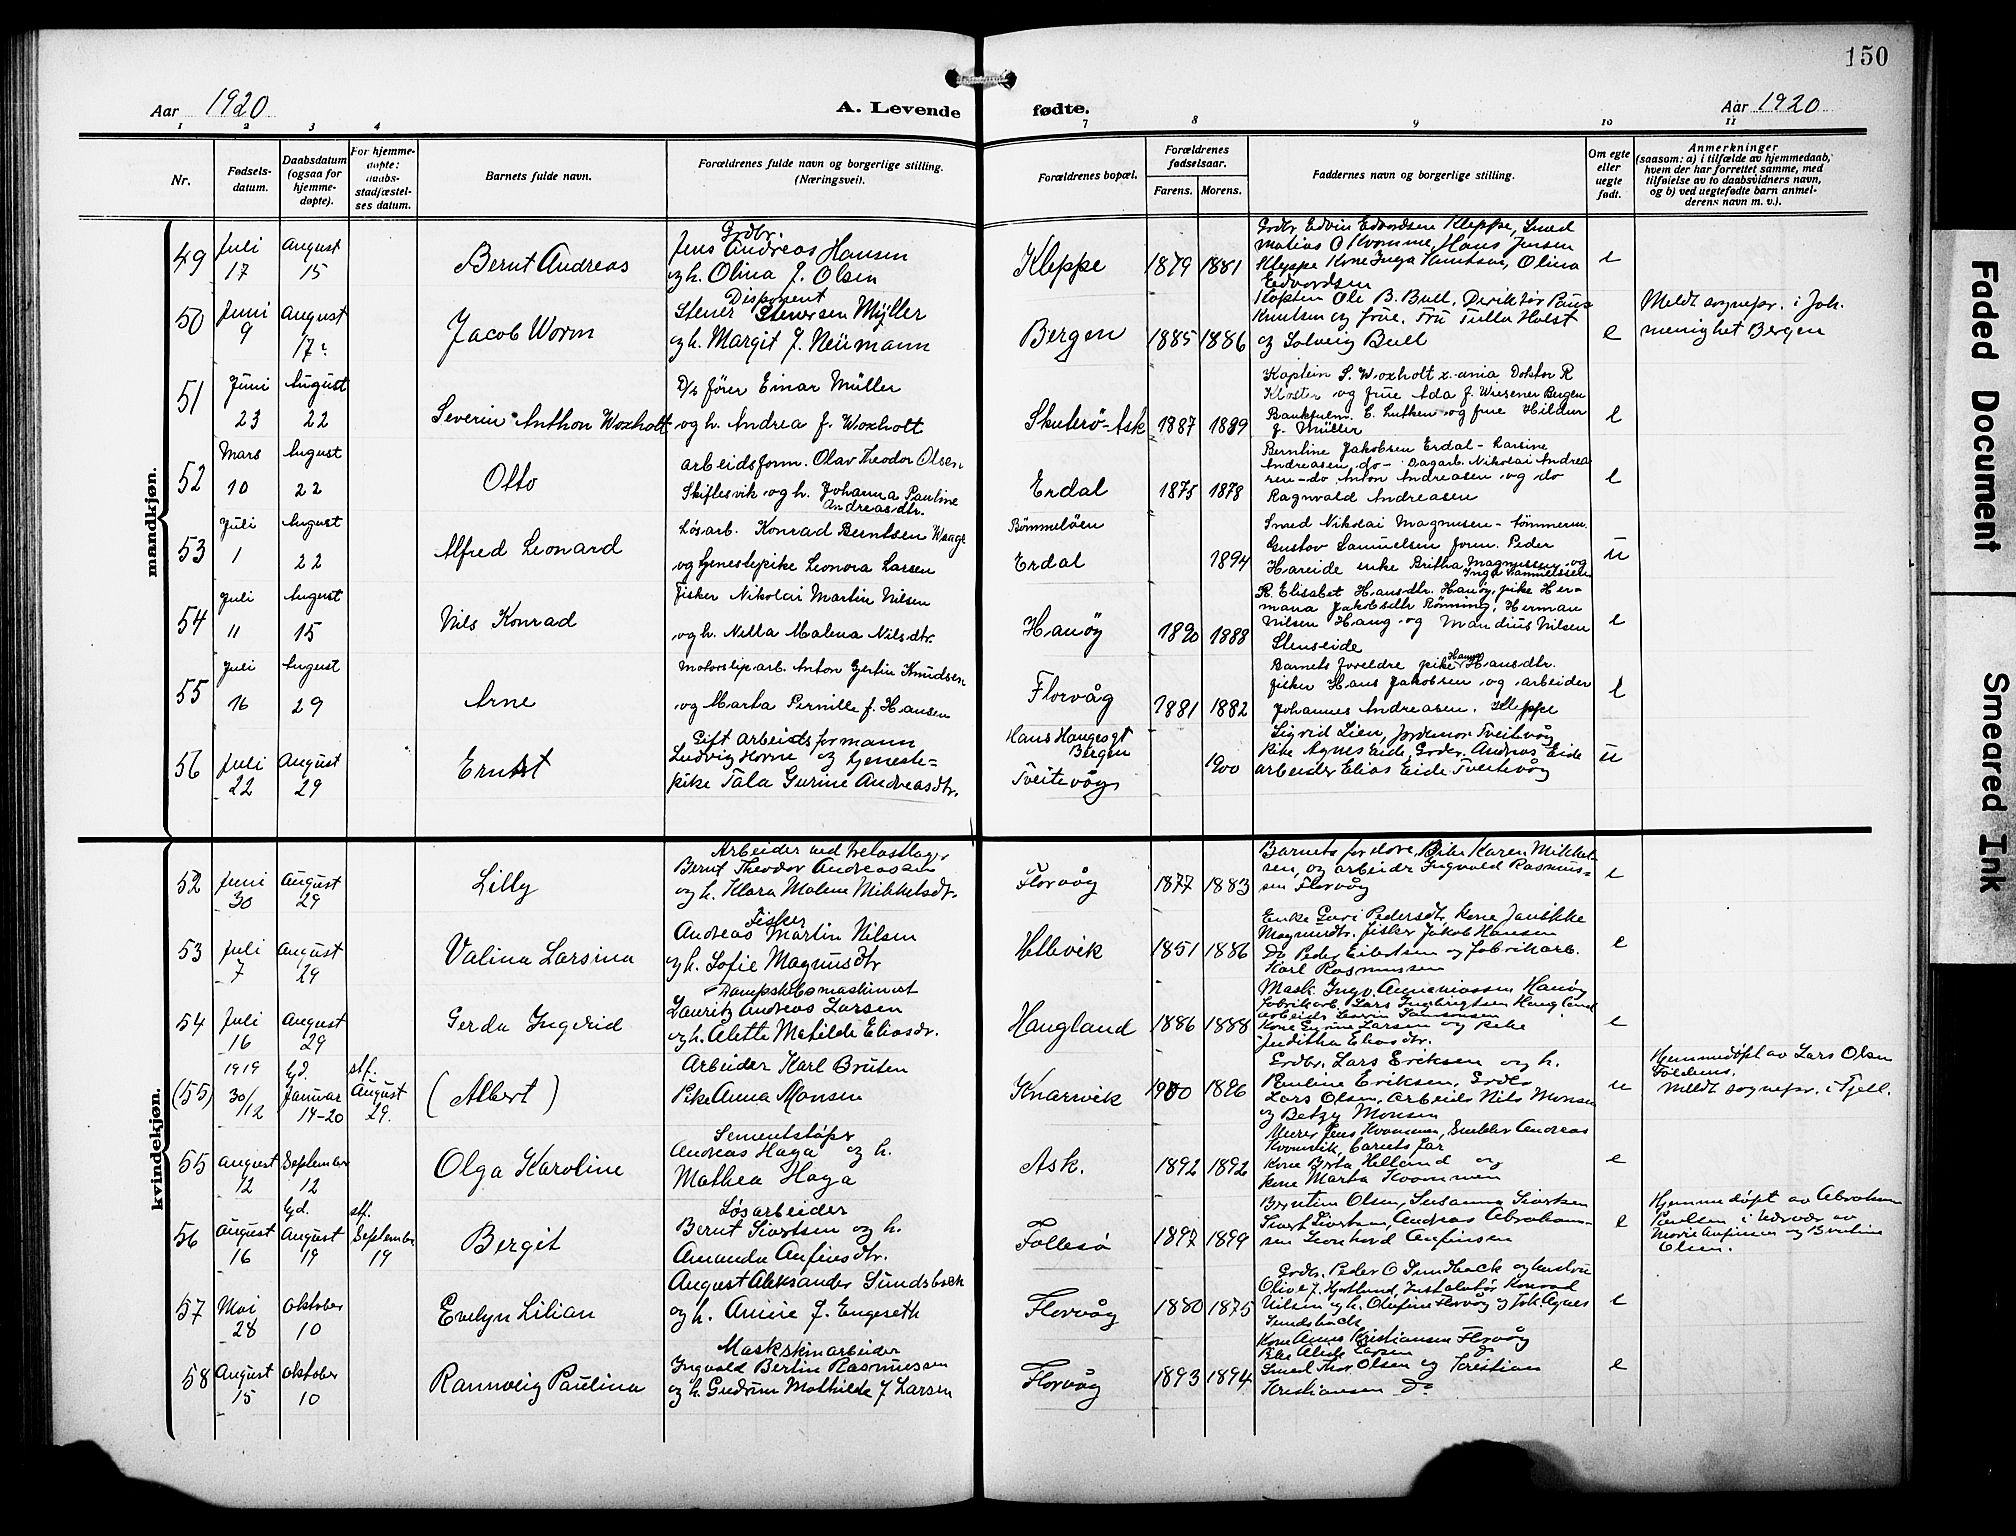 150
Aar 1920
A. Levende fødte.
Aar 1920
1 2 3 4 7 8 9 10 11
Nr.
Fødsels-
datum.
Daabsdatum
(ogsaa for
hjemme-
døpte).
For hjemme-
døpte:
daabs-
stadfæstel-
ses datum.
Barnets fulde navn.
Forældrenes fulde navn og borgerlige stilling.
(Næringsvei).
Forældrenes bopæl.
Forældrenes
fødselsaar.
Farens. Morens.
Faddernes navn og borgerlige stilling.
Om egte
eller
uegte
født.
Anmerkninger
(saasom: a) i tilfælde av hjemmedaab,
hvem der har forrettet samme, med
tilføielse av to daabsvidners navn,
og b) ved uegtefødte barn anmel-
derens navn m. v.).
mandkjøn.
49 Juli 17 August 15 Bernt Andreas
Grdbr.
Jens Andreas Hansen
og h. Olina J. Olsen
Kleppe 1879 1881
Grdbr Edvin Edvardsen Kleppe, Smed
Matias O Kvamme, Hans Jensen
Kleppe Kone Inga Knutsen, Olina
Edvardsen
e
50 Juni 9 August 17 Jacob Worm
Disponent
Stener Stenersen Müller
og h. Margit J. Neumann
Bergen 1885 1886
Kaptein Ole B. Bull, Direktør Paus
Knutsen og frue, Fru Tulla Holst
og Solveig Bull
e
Meldt sognepr. i Joh.
menighet Bergen
51 Juni 23 August 22 Severin Anthon Woxholt
D/s fører Einar Müller
og h. Andrea f. Woxholt
Skuterö-Ask 1887 1889
Kaptein S. Woxholt Doktor R
Kloster og frue Ada f. Wiesener Bergen
E. Lutken og frue Hildur
f. Müller
e
52 Mars 10 August 22 Otto
arbeidsform. Olav Theodor Olsen
Skiftesvik og h. Johanna Pauline
Andreasdtr.
Erdal 1875 1878
Berntine Jakobsen Erdal - Larsine
Andreasen do- Dagarb. Nikolai Andrea
sen-do Anton Andreasen og do
Ragnvald Andreasen
e
53 Juli 1 August 22 Alfred Leonard
Løsarb. Konrad Berntsen Waage
og tjenestepike Leonora Larsen
Bømmeløen
Erdal 1894
Smed Nikolai Magnusen - tømmerm.
Gustav Samuelsen form. Peder
Hareide enke Britha Magnussen og
Inga Samuelsen
u
54 Juli 11 August 15 Nils Konrad
Fisker Nikolai Martin Nilsen
og h. Nella Malena Nilsdtr.
Hanöy 1890 1888
K. Elisabet Hansdtr. Hanöy, pike Her-
mana Jakobsdtr Rönning, Herman
Nilsen Haug og Mandius Nilsen
Stenseide
e
55 Juli 16 August 29 Arne
Motorsliparb. Anton Gertin Knudsen
og Marta Pernille f. Hansen
Florvåg 1881 1882
Barnets foreldre pike Hanna Hansdtr.
fisker Hans Jakobsen og arbeider
Johannes Andreasen. Kleppe
e
56 Juli 22 August 29 Ernst
Gift arbeidsformann
Ludvig Horne og tjeneste-
pike Tala Gurine Andreasdtr.
Hans Haugesgt
Bergen
Tveitevåg 1900
Sigrid Lien, Jordmor Tveitvåg
Pike Agnes Eide, Grdbr. Andreas Eide
arbeider Elias Eide Tveitevåg
u
kvindekjøn.
52 Juni 30 August 29 Lilly
Arbeider ved trelastlager
Bernt Theodor Andreassen
og h. Klara Malene Mikkelsdtr.
Florvåg 1877 1883
Barnets foreldre, Pike Karen Mikkel-
sen, og arbeider Ingvald Rasmus-
sen Florvåg
e
53 Juli 7 August 29 Valina Larsina
Fisker
Andreas Martin Nilsen
og h. Sofie Magnusdtr
Hellevik 1851 1886
Enke Guri Pedersdtr, Kone Jannikke
Magnusdtr. fisker Jakob Hansen
Do Peder Eilertsen og fabrikarb.
Karl Rasmussen
e
54 Juli 16 August 29 Gerda Ingerid
Dampskibsmaskinist
Lauritz Andreas Larsen
og h. Alette Matilde Eliasdr.
Haugland 1886 1888
Mask. Ingv. Annaniassen Hanöy
fabrikarb. Lars Ingebrigtsen Haugland
Kone Gurine Larsen og pike
Juditha Eliasdtr.
e
(55) 1919 30/12 Gd. Januar 14-20 stf. August 29. (Albert)
Arbeider Karl Bruten
Pike Anna Monsen
Knarvik 1900 1896
Grdbr. Lars Eriksen og h.
Pauline Eriksen, Grdbr
Lars Olsen, Arbeids Nils Monsen
og Betzy Monsen
u
Hjemmedøpt av Lars Olsen
Meldt sognepr. i Fjell.
55 August 12 September 12 Olga Karoline
Sementstøper
Andreas Haga og h.
Mathea Haga
Ask. 1892 1892
Murer Jens Kvammen, Snekker Andreas
Kvamsvik, barnets far
Kone Brta Helland og
pike Marta Kvammen
e
56 August 16 Gd. August 19 stf. September 19 Bergit
Løsarbeider
Bernt Sivertsen og h.
Amanda Anfinsdtr.
Follesø 1897 1899
Berntin Olsen, Susanna Sivertsen
Sivert Sivertsen, Andreas Abraham-
sen Leonhard Anfinsen
e
Hjemmedøpt av Abraham
Paulsen i nærvær av
Marie Anfinsen og Berntine
Olsen.
57 Mai 28 Oktober 10 Evelyn Lilian
August Aleksander Sundsback
og h. Amine J. Engeseth
Florvåg 1880 1875
Grdbr. Peder O Sundback og hustru
Olive J. Hjertland, Installatør Konrad
Nilsen og h. Olufine Florvåg og frk. Agnes
Sundsback
e
58 August 15 Oktober 10 Rannveig Paulina
Maskskinarbeider
Ingvald Bertin Rasmussen
og h. Gudrun Mathilde J Larsen
Florvåg 1893 1894
Kone Anna Kristiansen Florvåg
Pike Alida Larsen Do
Smed Thor Olsen og Kristian
Kristiansen Do
e
Faded Document
Smeared Ink